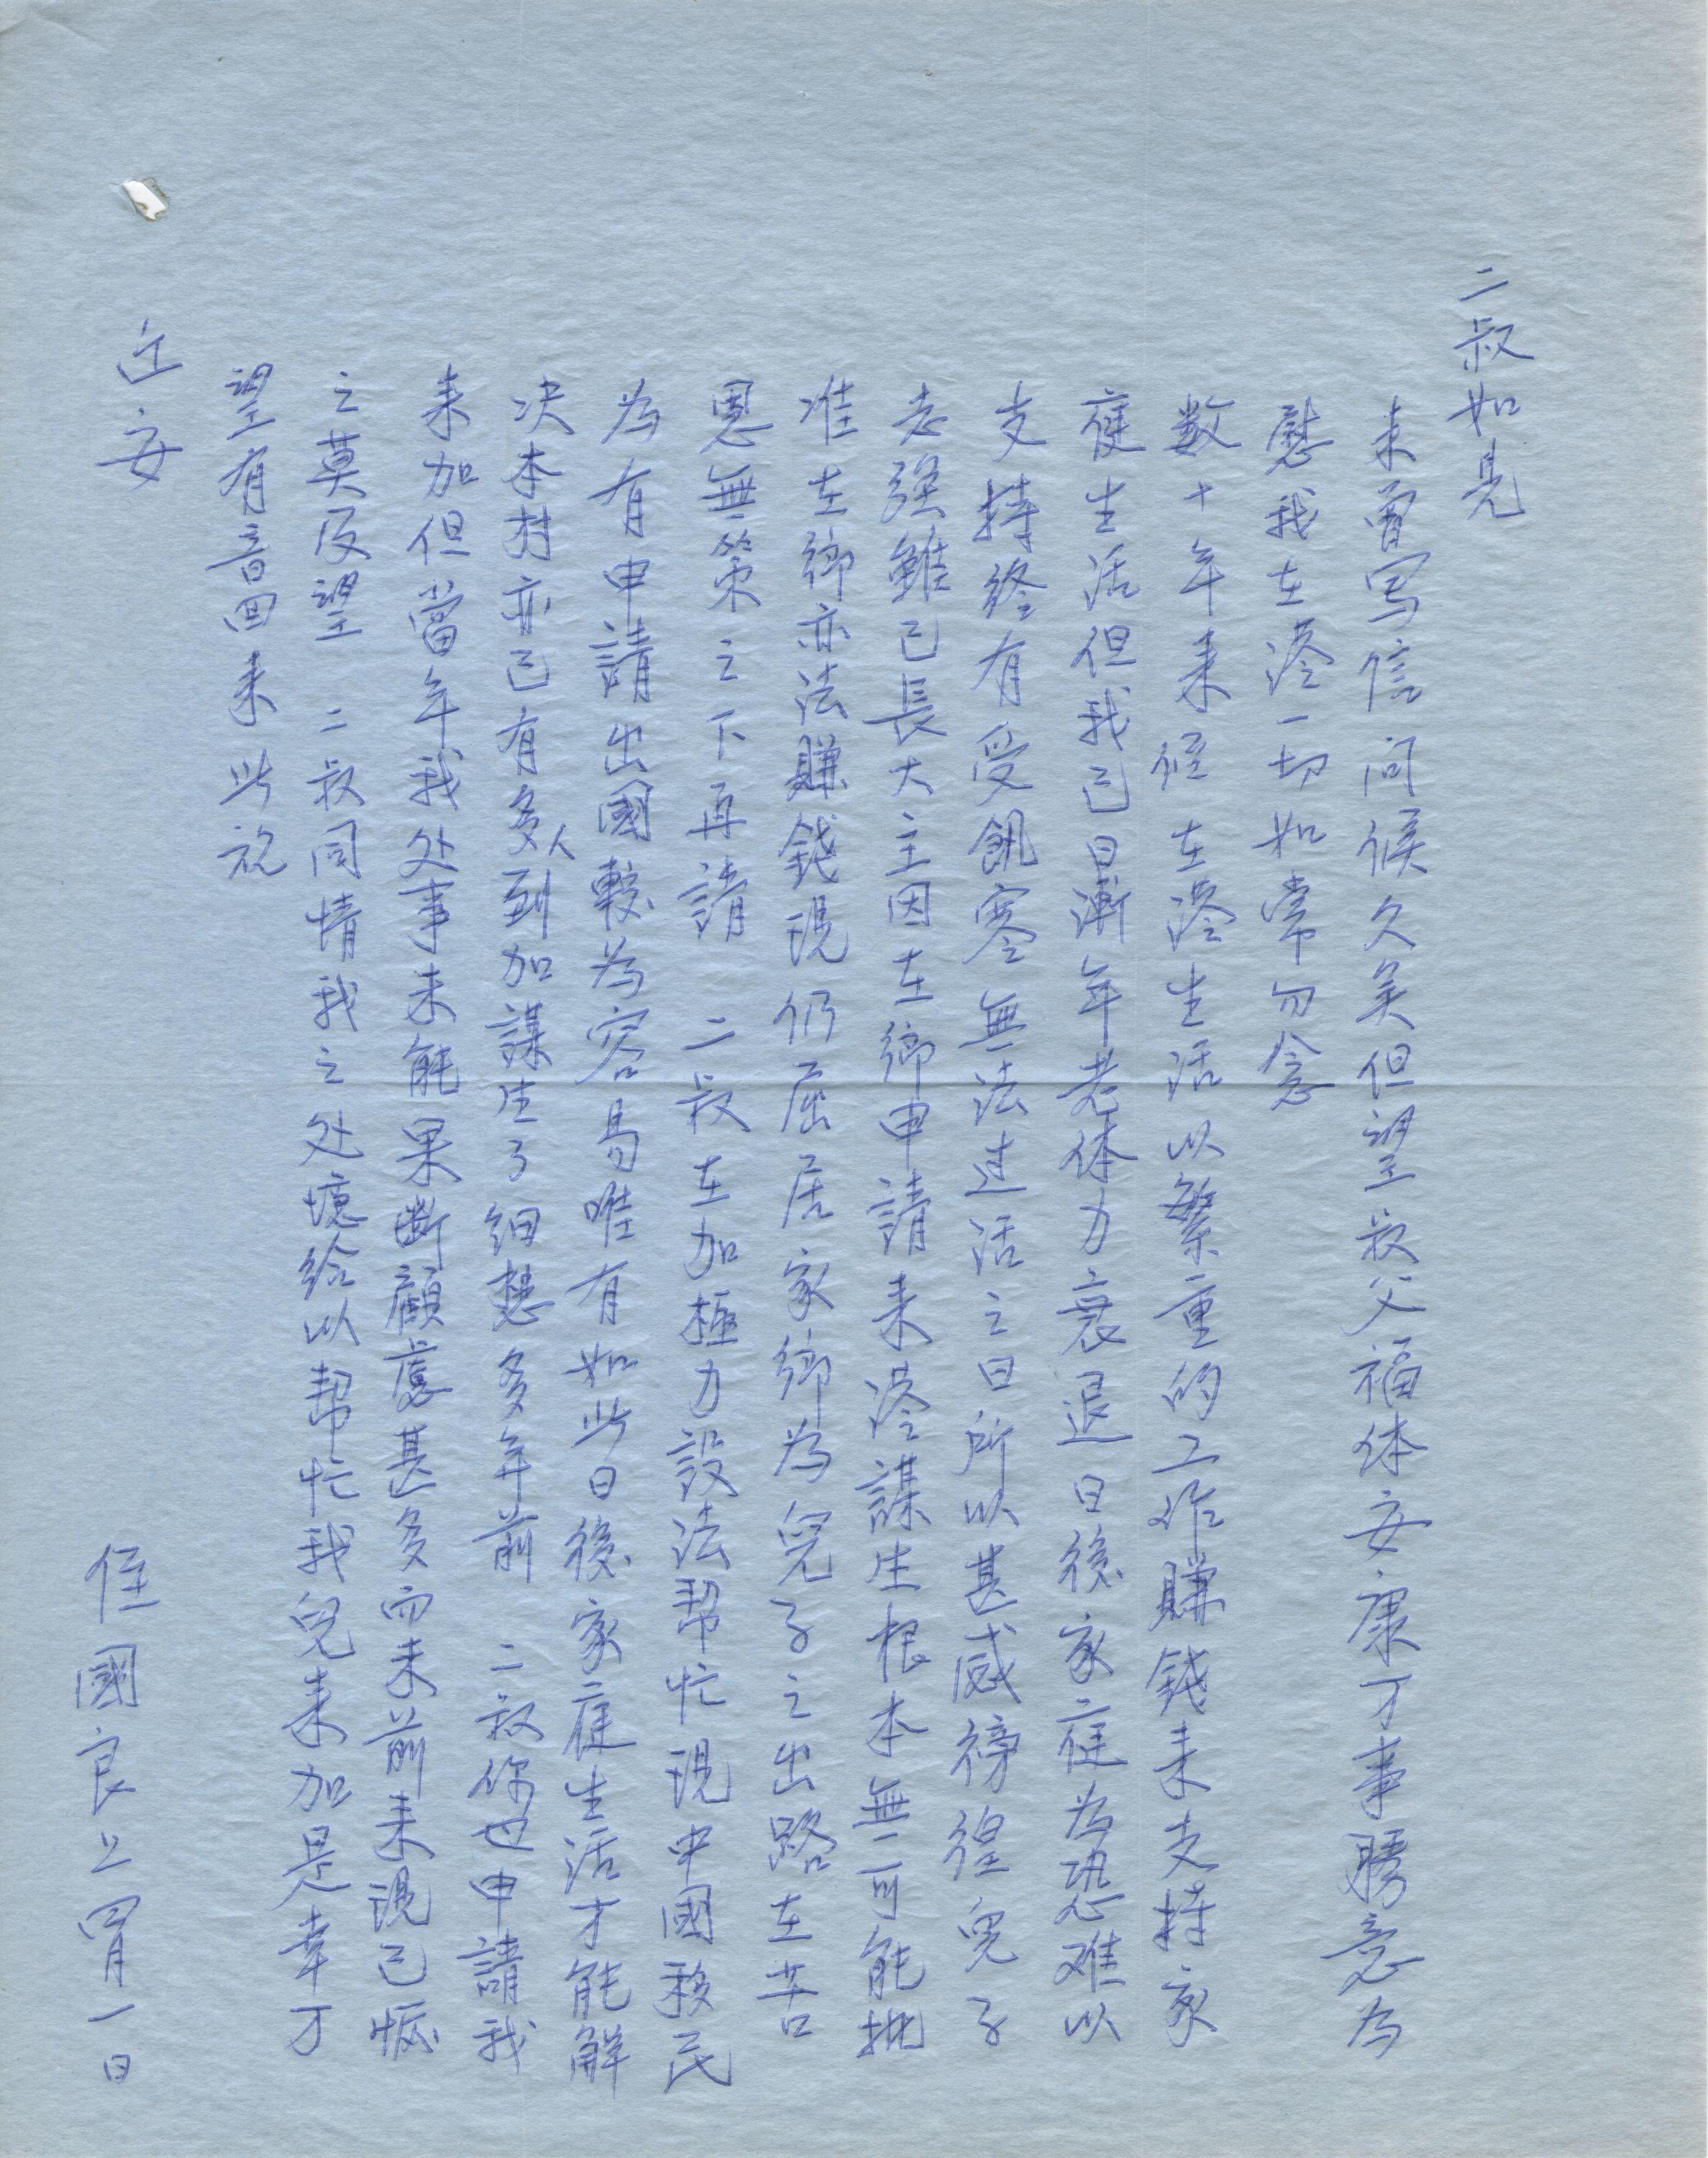 二叔如見
未曾写信问候久矣但望叔父福体安康万事勝意為
慰我在港一切如常勿念
数十年来侄在港生活以繁重的工作賺錢来支持家
庭生活但我已日漸年老体力衰退日後家庭為恐难以
支持終有受飢寒無法过活之日所以甚感徬徨兒子
志强雖已長大主因在鄉申請来港謀生根本無可能批
准在鄉亦法賺錢現仍屈居家鄉為兒子之出路在苦
思無策之下再請 二叔在加極力設法帮忙現中國移民
為有申請出國較為容易唯有如此日後家庭生活才能解
决本村亦已有多人到加謀生了细想多年前 二叔你也申請我
来加但當年我处事未能果断顧慮甚多而未前来現已悔
之莫及望 二叔同情我之处境给以帮忙我兒来加是幸万
望有音回来此祝
近安
侄國良上四月一日